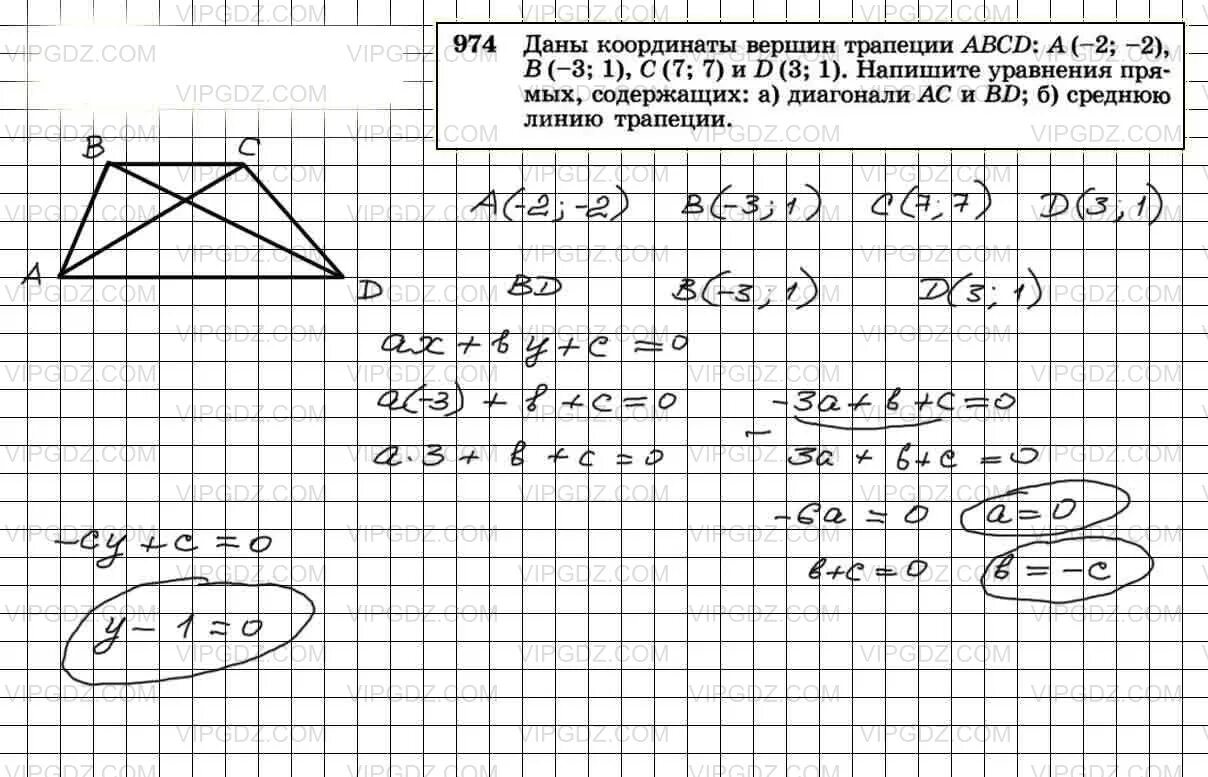 974 Даны координаты вершин трапеции ABCD: A (−2; −2),
B (−3; 1), C (7; 7) и D (3; 1). Напишите уравнения пря-
мых, содержащих: а) диагонали AC и BD; б) среднюю
линию трапеции.
B C
A D
A(-2; -2) B(-3; 1) C(7; 7) D(3; 1)
BD B(-3; 1) D(3; 1)
ax + by + c = 0
a(-3) + b + c = 0 -3a + b + c = 0
a·3 + b + c = 0 − 3a + b + c = 0
-6a = 0 a = 0
-cy + c = 0 b + c = 0 b = -c
y - 1 = 0
VIPGDZ.COM